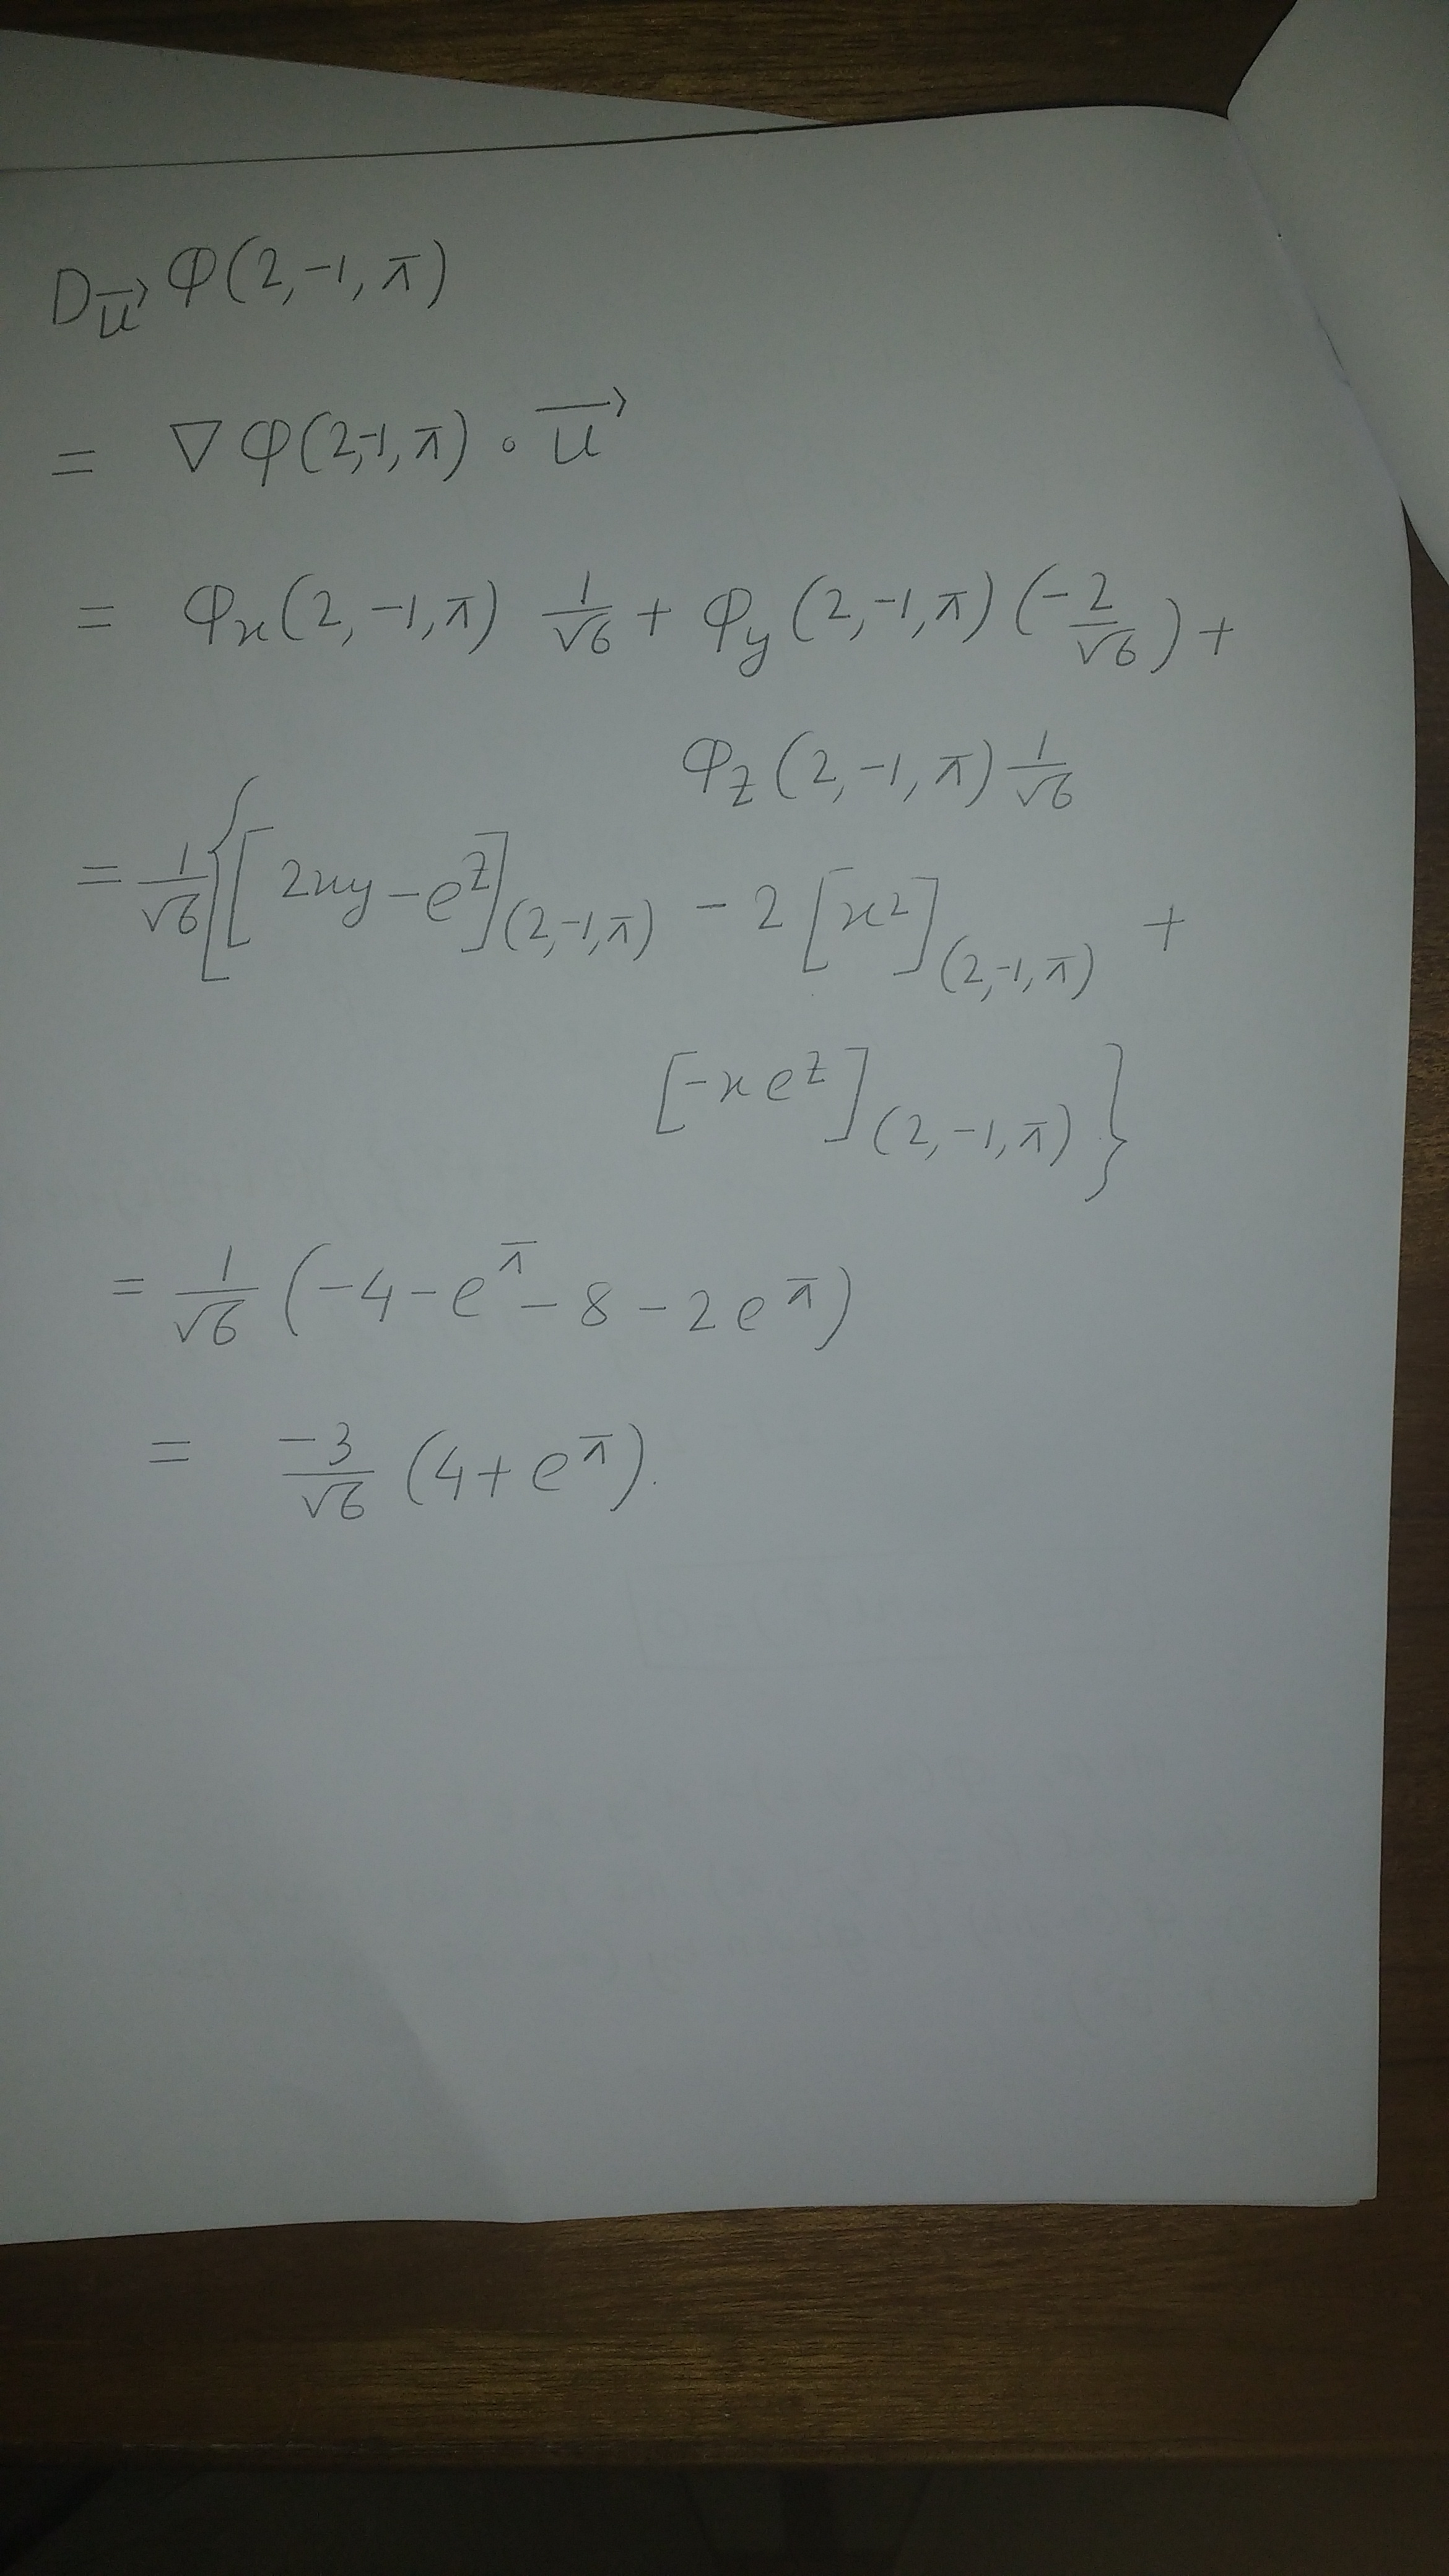 D_{\vec{u}} φ(2,-1,π)
= ∇φ(2,-1,π) ∘ \vec{u}
= φ_x(2,-1,π) 1/√6 + φ_y(2,-1,π)(-2/√6) +
φ_z(2,-1,π) 1/√6
= 1/√6 {[2xy - e^z]_{(2,-1,π)} - 2[x²]_{(2,-1,π)} +
[-xe^z]_{(2,-1,π)}}
= 1/√6 (-4 - e^π - 8 - 2e^π)
= -3/√6 (4 + e^π).